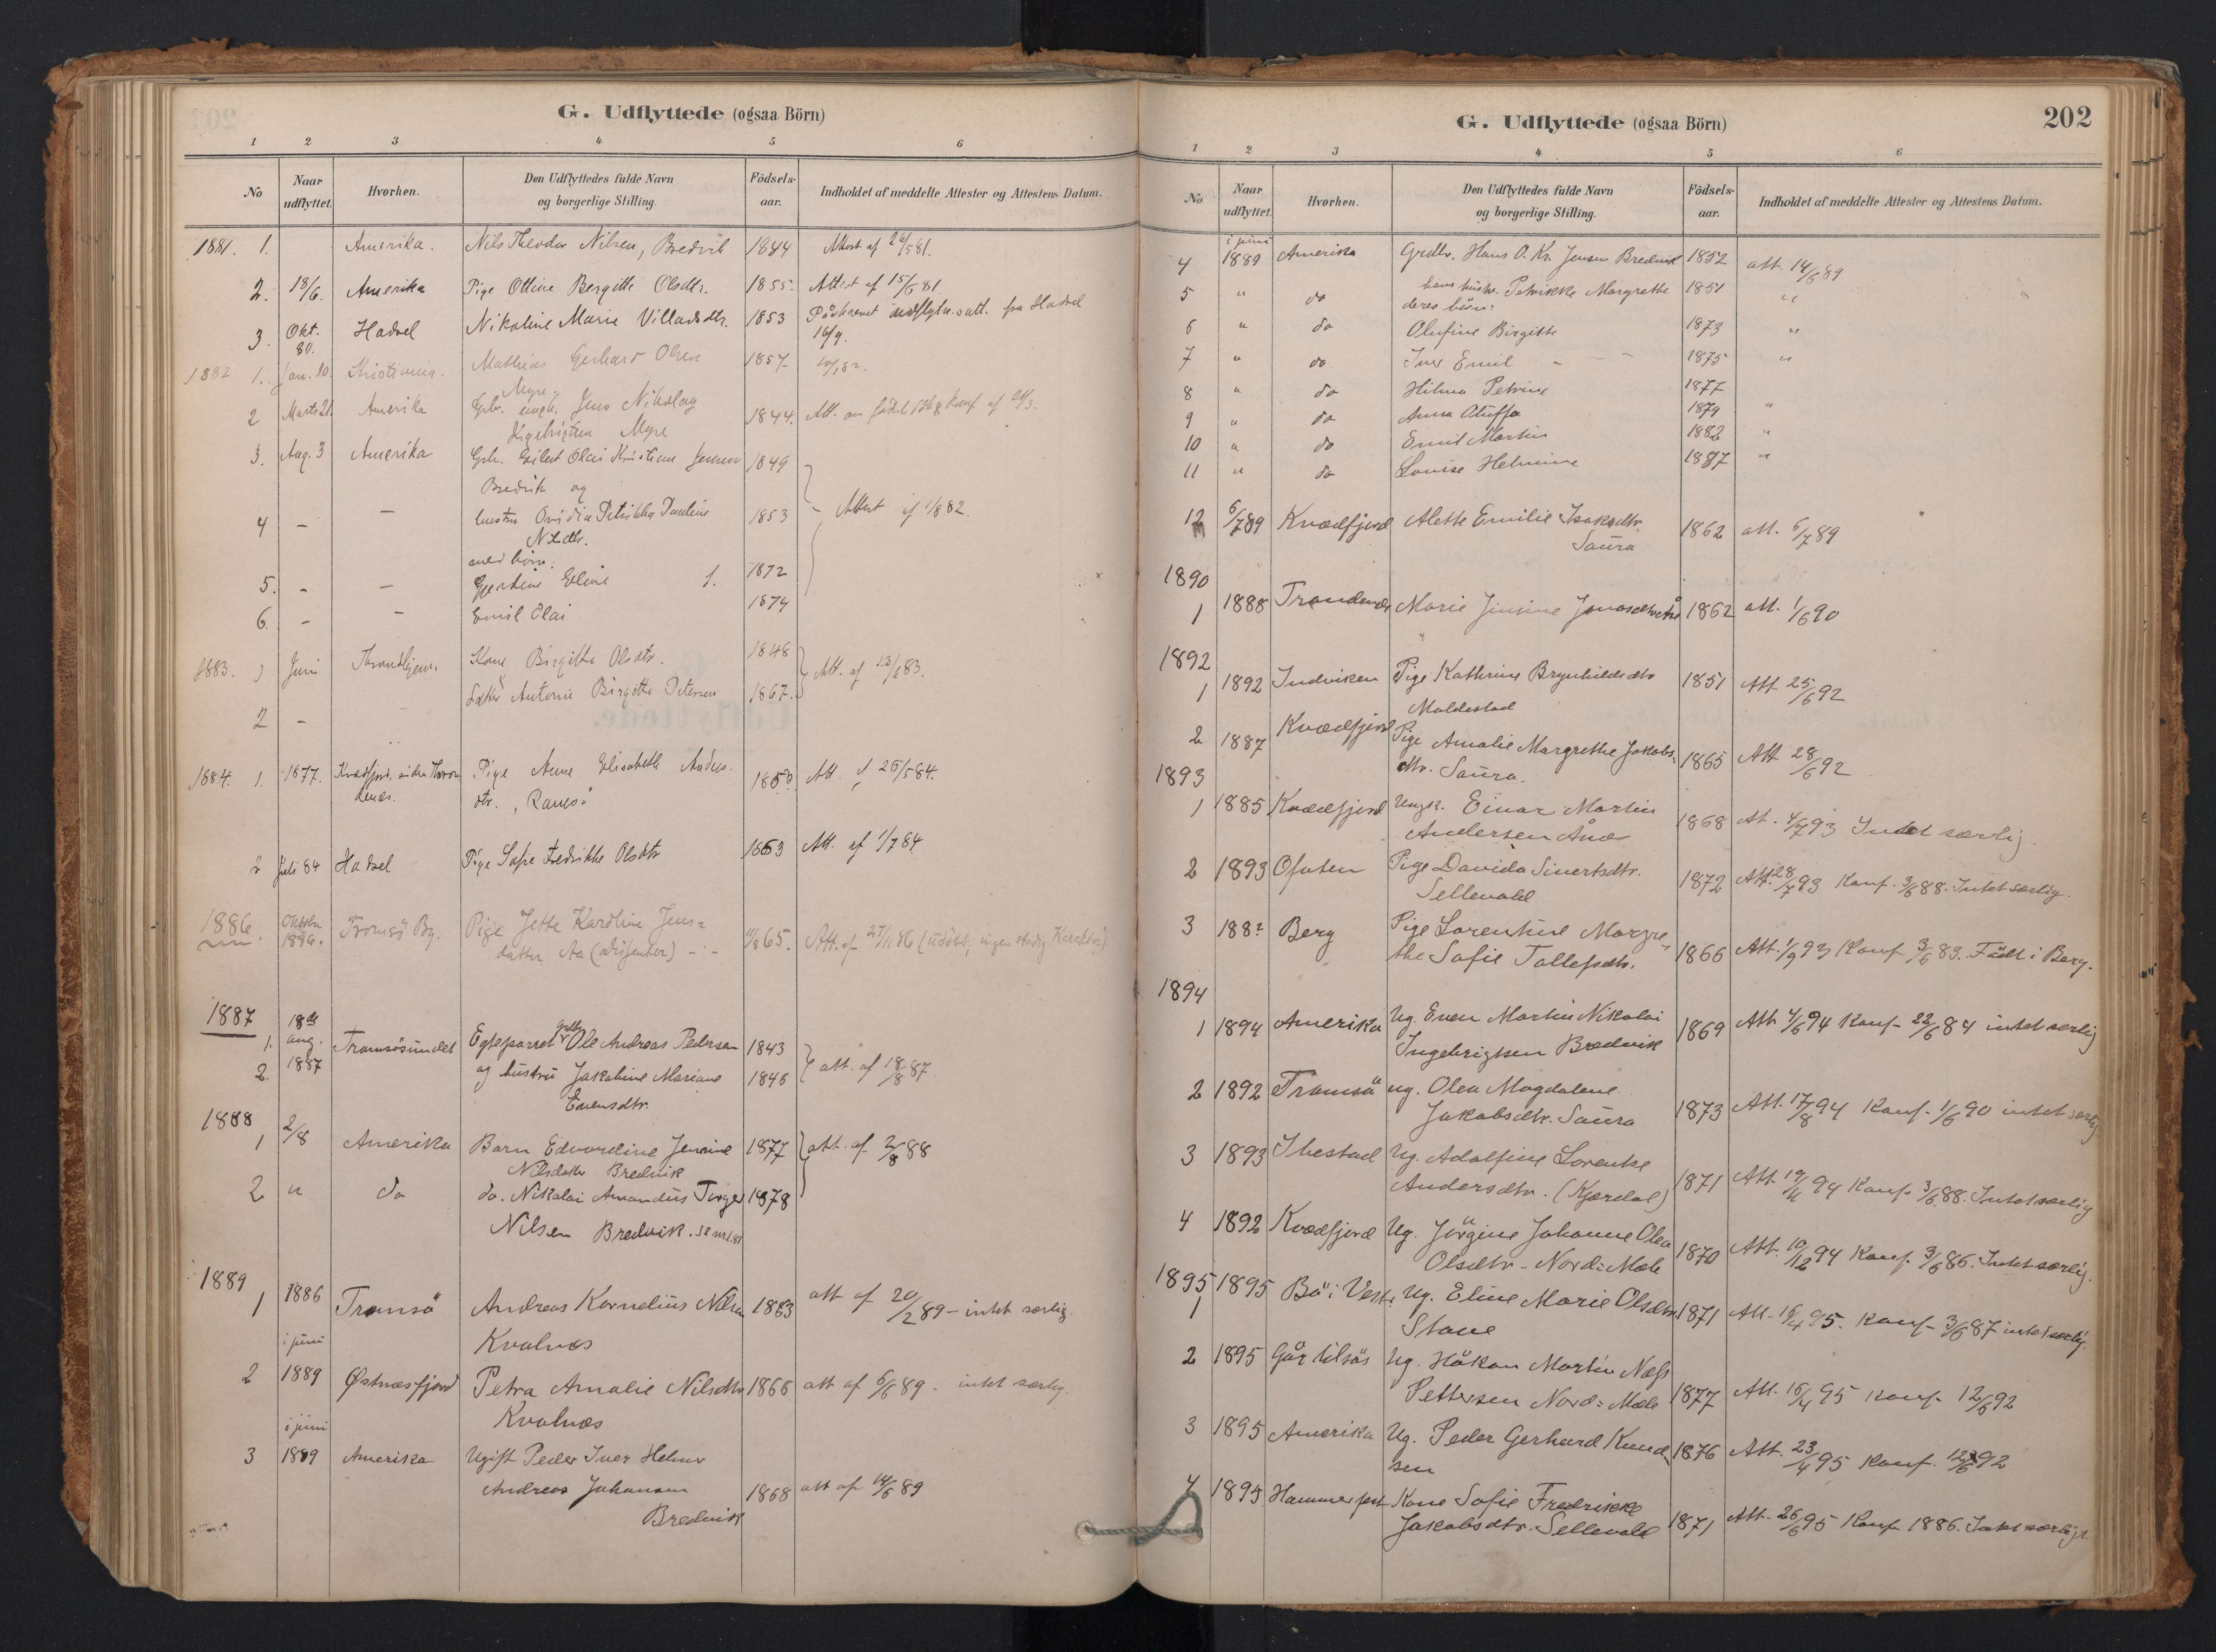 G. Udflyttede (ogsaa Börn)
1 2 3 4 5 6
No Naar udflyttet. Hvorhen. Den Udflyttedes fulde Navn og borgerlige Stilling. Födsels-aar. Indholdet af meddelte Attester og Attestens Datum.
1881. 1. Amerika. Nils Theodor Nilsen, Bredvik 1844 Attest af 24/5 81.
2. 18/6. Amerika Pige Ottine Bergitte Olsdtr. 1855. Attest af 15/6 81.
3. Okt. 80. Hadsel Nikoline Marie Villadsdtr. 1853 Påskrevet indflytn.s att. fra Hadsel
16/9.
1882 1. Jan. 10. Kristiania. Mathias Gerhard Olsen 1857
Myre.
2 Marts 21 Amerika Gbr. ungk. Jens Nikolay 1844. Att. om födsel 1848 Konf. af 21/3.
Ingebrigtsen Myre
3. Aug. 3 Amerika Gbr. Eilert Olai Kristian Jensen 1849
Bredvik og
4 – – hustru Ovidia Petrikka Pauline 1853 – Attest af 1/8 82.
Nilsdtr.
med børn:
5. - – Gjertine Eline 1. 1872
6. – – Emil Olai 1874
1883. 1 Juni Throndhjem. Kone Birgitte Olsdtr. 1848 Att. af 13/6 83.
Datter Antonie Birgitte Petersen 1867.
2 –
1884. 1. 1877. Kvædfjord, siden Thron- Pige Anne Elisabeth Anders- 1853. Att. af 26/5 84.
denæs. dtr., Ramså
2 Juli 84 Hadsel Pige Sofie Fredrikke Olsdtr 1863 Att. af 1/7 84
1886. Oktober 1886. Tromsö By. Pige Jette Karoline Jens- 11/8 65. Att. af 27/1 86 (udöbt, ingen stadig Karakter)
datter Aa (dissenter) - -
1887 18de
1. aug. Tromsösundet Egteparret Gbr. Ole Andreas Pedersen 1843
2. 1887 og hustru Jakobine Mariane 1846 att. af 18/8 87.
Evensdtr.
1888
1 2/8 Amerika Barn Edvardine Jensine 1877 att. af 2/8 88
Nilsdatter Bredvik
2 " do do. Nikolai Amandus Torger 1878
Nilsen Bredvik.
1889
1 1886 Tromsö Andreas Kornelius Nilsen 1863 att af 20/2 89 – intet særlig.
Kvalnæs
i juni
2 1889 Østnæsfjord Petra Amalie Nilsdtr 1866 att af 6/6 89 - intet særlig.
Kvalnæs
i juni
3 1889 Amerika Ugift Peder Iver Helmer
Andreas Johansen 1868 att af 14/6 89
Bredvik
202
G. Udflyttede (ogsaa Börn)
1 2 3 4 5 6
No Naar udflyttet. Hvorhen. Den Udflyttedes fulde Navn og borgerlige Stilling. Födsels-aar. Indholdet af meddelte Attester og Attestens Datum.
i juni
4 1889 Amerika Grdbr. Hans O. Kr. Jensen Bredvik 1852 att. 14/6 89
5 " do hans hustr. Petrikke Margrethe 1851 "
deres börn:
6 " do Olufine Birgitte 1873 "
7 " do Jens Emil - - - 1875 "
8 " do Hilma Petrine 1877
9 " do Anna Oluffa 1879 "
10 " do Emil Martin 1882 "
11 " do Louise Helmine 1887 "
12 6/7 89 Kvædfjord Alette Emilie Isaksdtr. 1862 att. 6/7 89
Saura
1890
1 1888 Trondenæs Marie Jensine Jonasdtr 1862 att. 1/6 90
1892
1 1892 Indviken Pige Kathrine Brynhildsdtr 1851 Att 25/6 92
Moldestad
2 1887 Kvædfjord Pige Amalie Margrethe Jakobs- 1865 Att 28/6 92
dtr. Saura.
1893
1 1885 Kvædfjord Ungk. Einar Martin 1868 At. 4/7 93 Intet særlig.
Andersen Ånæ
2 1893 Ofoten Pige Davida Sivertsdtr. 1872 Att. 28/7 93 Konf. 3/6 88. Intet særlig.
Sellevold
3 188? Berg Pige Lorentine Margre- 1866 Att. 1/9 93 Konf. 3/6 83. Födt i Berg.
the Sofie Tollefsdtr.
1894
1 1894 Amerika Ug. Even Martin Nikolai 1869 Att 4/6 94 Konf. 22/6 84 intet særlig
Ingebrigtsen Bredvik
2 1892 Tromsö ug. Olea Magdalene 1873 Att. 17/8 94 Konf. 1/6 90 intet særlig
Jakobsdtr. Saura
3 1893 Ibestad Ug. Adolfine Lorentse 1871 Att. 19/11 94 Konf. 3/6 88. Intet særlig
Andersdtr. (Kjærdal)
4 1892 Kvædfjord Ug. Jörgine Johanne Olea 1870 Att. 10/12 94 Konf. 3/6 86. Intet særlig.
Olsdtr - Nord-Mæle
1895
1 1895 Bö i Vest. Ug. Eline Marie Olsdtr 1871 Att. 16/4 95. Konf. 3/6 87 intet særlig.
Stave
2 1895 Går tilsös Ug. Håkon Martin Næss
Pettersen Nord-Mæle 1877 Att. 16/4 95 Konf. 12/6 92
3 1895 Amerika Ug. Peder Gerhard Knud- 1876 Att. 23/4 95 Konf. 12/6 92
sen
4 1895 Hammerfest Kone Sofie Fredrikke
Jakobsdtr. Sellevold 1871 Att. 26/6 95 Konf 1886. Intet særligt.